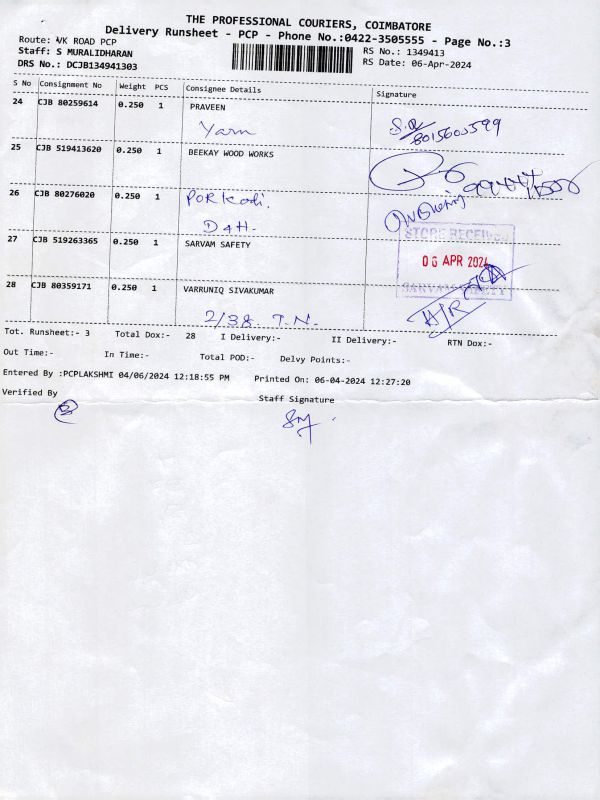 THE PROFESSIONAL COURIERS, COIMBATORE
Delivery Runsheet - PCP - Phone No.:0422-3505555 - Page No.:3
Route: VK ROAD PCP
RS No.: 1349413
Staff: S MURALIDHARAN
RS Date: 06-Apr-2024
DRS No.: DCJB134941303
S No Consignment No Weight PCS Consignee Details Signature
24 CJB 80259614 0.250 1 PRAVEEN
Yarn
25 CJB 519413620 0.250 1 BEEKAY WOOD WORKS
26 CJB 80276020 0.250 1 Porkodi.
D4H.
27 CJB 519263365 0.250 1 SARVAM SAFETY
STORE RECEIVED
06 APR 2024
SARVAM SAFETY
28 CJB 80359171 0.250 1 VARRUNIQ SIVAKUMAR
2/38 T.N.
Tot. Runsheet:- 3 Total Dox:- 28 I Delivery:- II Delivery:- RTN Dox:-
Out Time:- In Time:- Total POD:- Delvy Points:-
Entered By :PCPLAKSHMI 04/06/2024 12:18:55 PM Printed On: 06-04-2024 12:27:20
Verified By Staff Signature